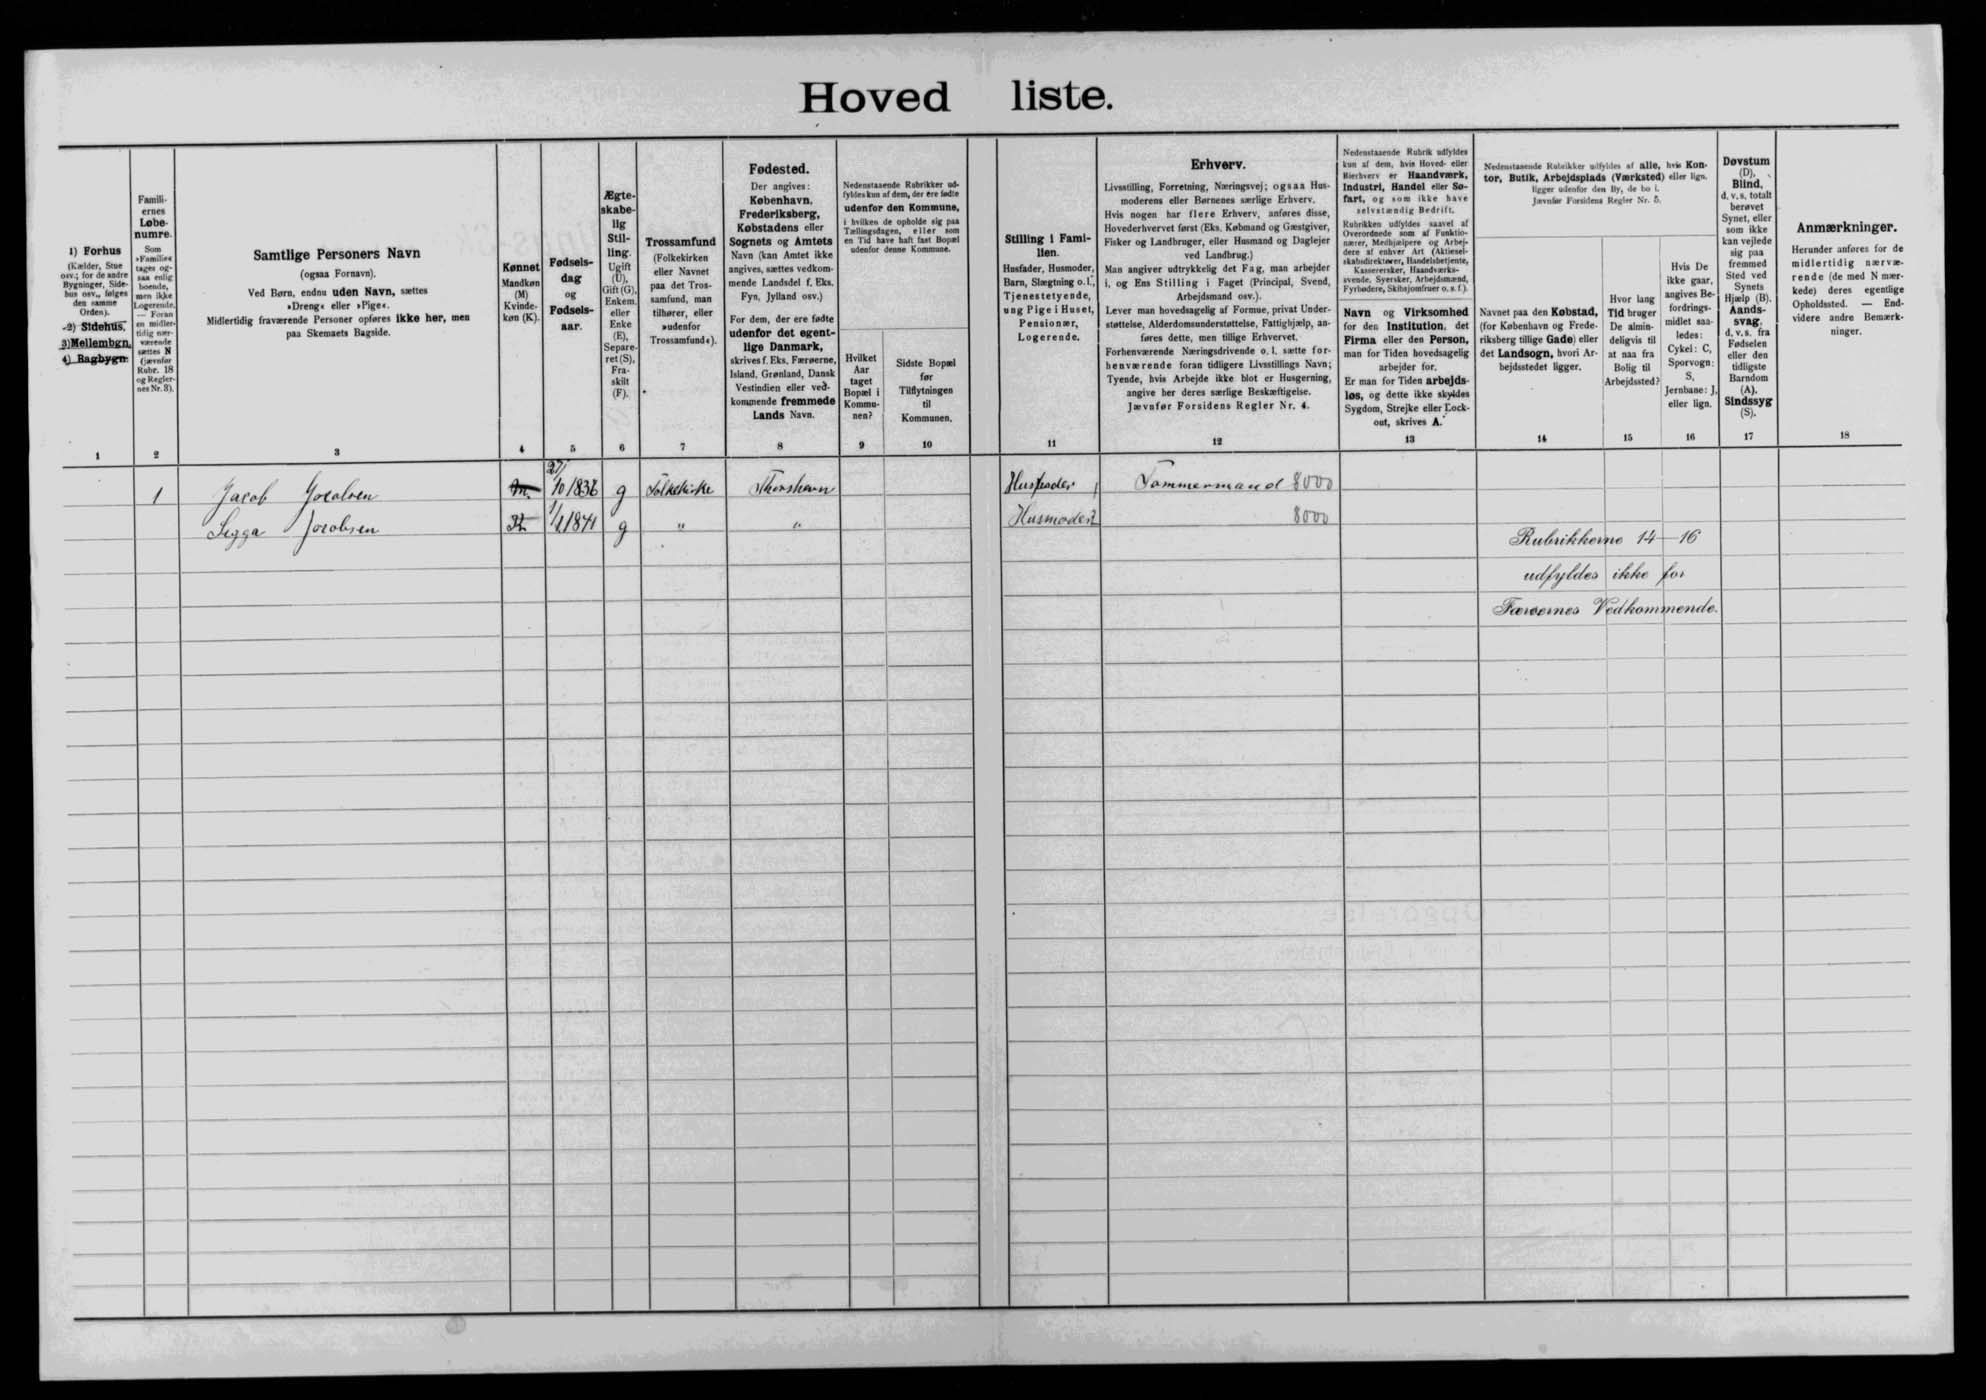 Hoved liste.
1) Forhus
(Kælder, Stue
osv.; for de andre
Bygninger, Side-
hus osv., følges
den samme
Orden).
2) Sidehus,
3) Mellembgn.
4) Bagbygn.
1
Famili-
ernes
Løbe-
numre.
Som
»Familie«
tages og-
saa enlig
boende,
men ikke
Logerende.
— Foran
en midler-
tidig nær-
værende
sættes N
(jævnfør
Rubr. 18
og Regler-
nes Nr. 3).
2
Samtlige Personers Navn
(ogsaa Fornavn).
Ved Børn, endnu uden Navn, sættes
»Dreng« eller »Pige«.
Midlertidig fraværende Personer opføres ikke her, men
paa Skemaets Bagside.
3
Kønnet
Mandkøn
(M)
Kvinde-
køn (K).
4
Fødsels-
dag
og
Fødsels-
aar.
5
Ægte-
skabe-
lig
Stil-
ling.
Ugift
(U),
Gift (G),
Enkem.
eller
Enke
(E),
Separe-
ret (S),
Fra-
skilt
(F).
6
Trossamfund
(Folkekirken
eller Navnet
paa det Tros-
samfund, man
tilhører, eller
»udenfor
Trossamfund«).
7
Fødested.
Der angives:
København,
Frederiksberg,
Købstadens eller
Sognets og Amtets
Navn (kan Amtet ikke
angives, sættes vedkom-
mende Landsdel f. Eks.
Fyn, Jylland osv.)
For dem, der ere fødte
udenfor det egent-
lige Danmark,
skrives f. Eks. Færøerne,
Island, Grønland, Dansk
Vestindien eller ved-
kommende fremmede
Lands Navn.
8
Nedenstaaende Rubrikker ud-
fyldes kun af dem, der ere fødte
udenfor den Kommune,
i hvilken de opholde sig paa
Tællingsdagen, eller som
en Tid have haft fast Bopæl
udenfor denne Kommune.
Hvilket
Aar
taget
Bopæl i
Kommu-
nen?
9
Sidste Bopæl
før
Tilflytningen
til
Kommunen.
10
Stilling i Fami-
lien.
Husfader, Husmoder,
Barn, Slægtning o.l.,
Tjenestetyende,
ung Pige i Huset,
Pensionær,
Logerende.
11
Erhverv.
Livsstilling, Forretning, Næringsvej; ogsaa Hus-
moderens eller Børnenes særlige Erhverv.
Hvis nogen har flere Erhverv, anføres disse,
Hovederhvervet først (Eks. Købmand og Gæstgiver,
Fisker og Landbruger, eller Husmand og Daglejer
ved Landbrug.)
Man angiver udtrykkelig det Fag, man arbejder
i, og Ens Stilling i Faget (Principal, Svend,
Arbejdsmand osv.).
Lever man hovedsagelig af Formue, privat Under-
støttelse, Alderdomsunderstøttelse, Fattighjælp, an-
føres dette, men tillige Erhvervet.
Forhenværende Næringsdrivende o. l. sætte for-
henværende foran tidligere Livsstillings Navn;
Tyende, hvis Arbejde ikke blot er Husgerning,
angive her deres særlige Beskæftigelse.
Jævnfør Forsidens Regler Nr. 4.
12
Nedenstaaende Rubrik udfyldes
kun af dem, hvis Hoved- eller
Bierhverv er Haandværk,
Industri, Handel eller Sø-
fart, og som ikke have
selvstændig Bedrift.
Rubrikken udfyldes saavel af
Overordnede som af Funktio-
nærer, Medhjælpere og Arbej-
dere af enhver Art (Aktiesel-
skabsdirektører, Handelsbetjente,
Kasserersker, Haandværks-
svende, Syersker, Arbejdsmænd,
Fyrbødere, Skibsjomfruer o. s. f.).
Navn og Virksomhed
for den Institution, det
Firma eller den Person,
man for Tiden hovedsagelig
arbejder for.
Er man for Tiden arbejds-
løs, og dette ikke skyldes
Sygdom, Strejke eller Lock-
out, skrives A.
13
Nedenstaaende Rubrikker udfyldes af alle, hvis Kon-
tor, Butik, Arbejdsplads (Værksted) eller lign.
ligger udenfor den By, de bo i.
Jævnfør Forsidens Regler Nr. 5.
Navnet paa den Købstad,
(for København og Frede-
riksberg tillige Gade) eller
det Landsogn, hvori Ar-
bejdsstedet ligger.
14
Hvor lang
Tid bruger
De almin-
deligvis til
at naa fra
Bolig til
Arbejdssted?
15
Hvis De
ikke gaar,
angives Be-
fordrings-
midlet saa-
ledes:
Cykel: C,
Sporvogn:
S,
Jernbane: J,
eller lign.
16
Døvstum
(D),
Blind,
d. v. s. totalt
berøvet
Synet, eller
som ikke
kan vejlede
sig paa
fremmed
Sted ved
Synets
Hjælp (B).
Aands-
svag,
d. v. s. fra
Fødselen
eller den
tidligste
Barndom
(A).
Sindssyg
(S).
17
Anmærkninger.
Herunder anføres for de
midlertidig nærvæ-
rende (de med N mær-
kede) deres egentlige
Opholdssted. — End-
videre andre Bemærk-
ninger.
18
1 Jacob Jocobsen M. 27/10 1836 g Folkekirke Thorshavn Husfader 1 Tømmermand 8000
Sigga Jocobsen K 1/1 1841 g " " Husmoder 2 8000
Rubrikkerne 14—16
udfyldes ikke for
Færøernes Vedkommende.